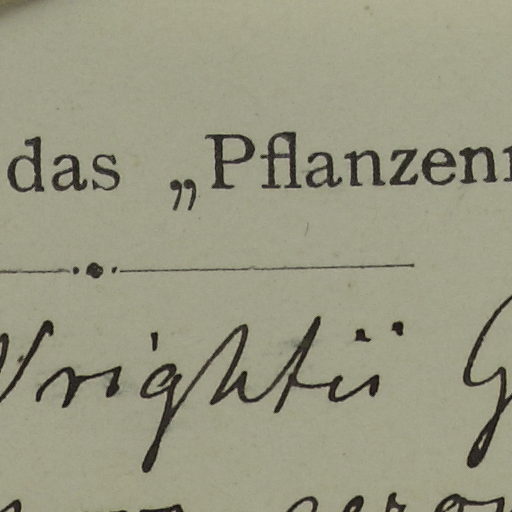 das „Pflanzen
Wrightii G